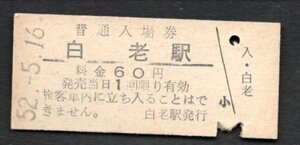 普通入場券
白老駅
料金60円
発売当日1回限り有効
旅客車内に立ち入ることはで
きません。 白老駅発行
52.-5.16
入・白老
小